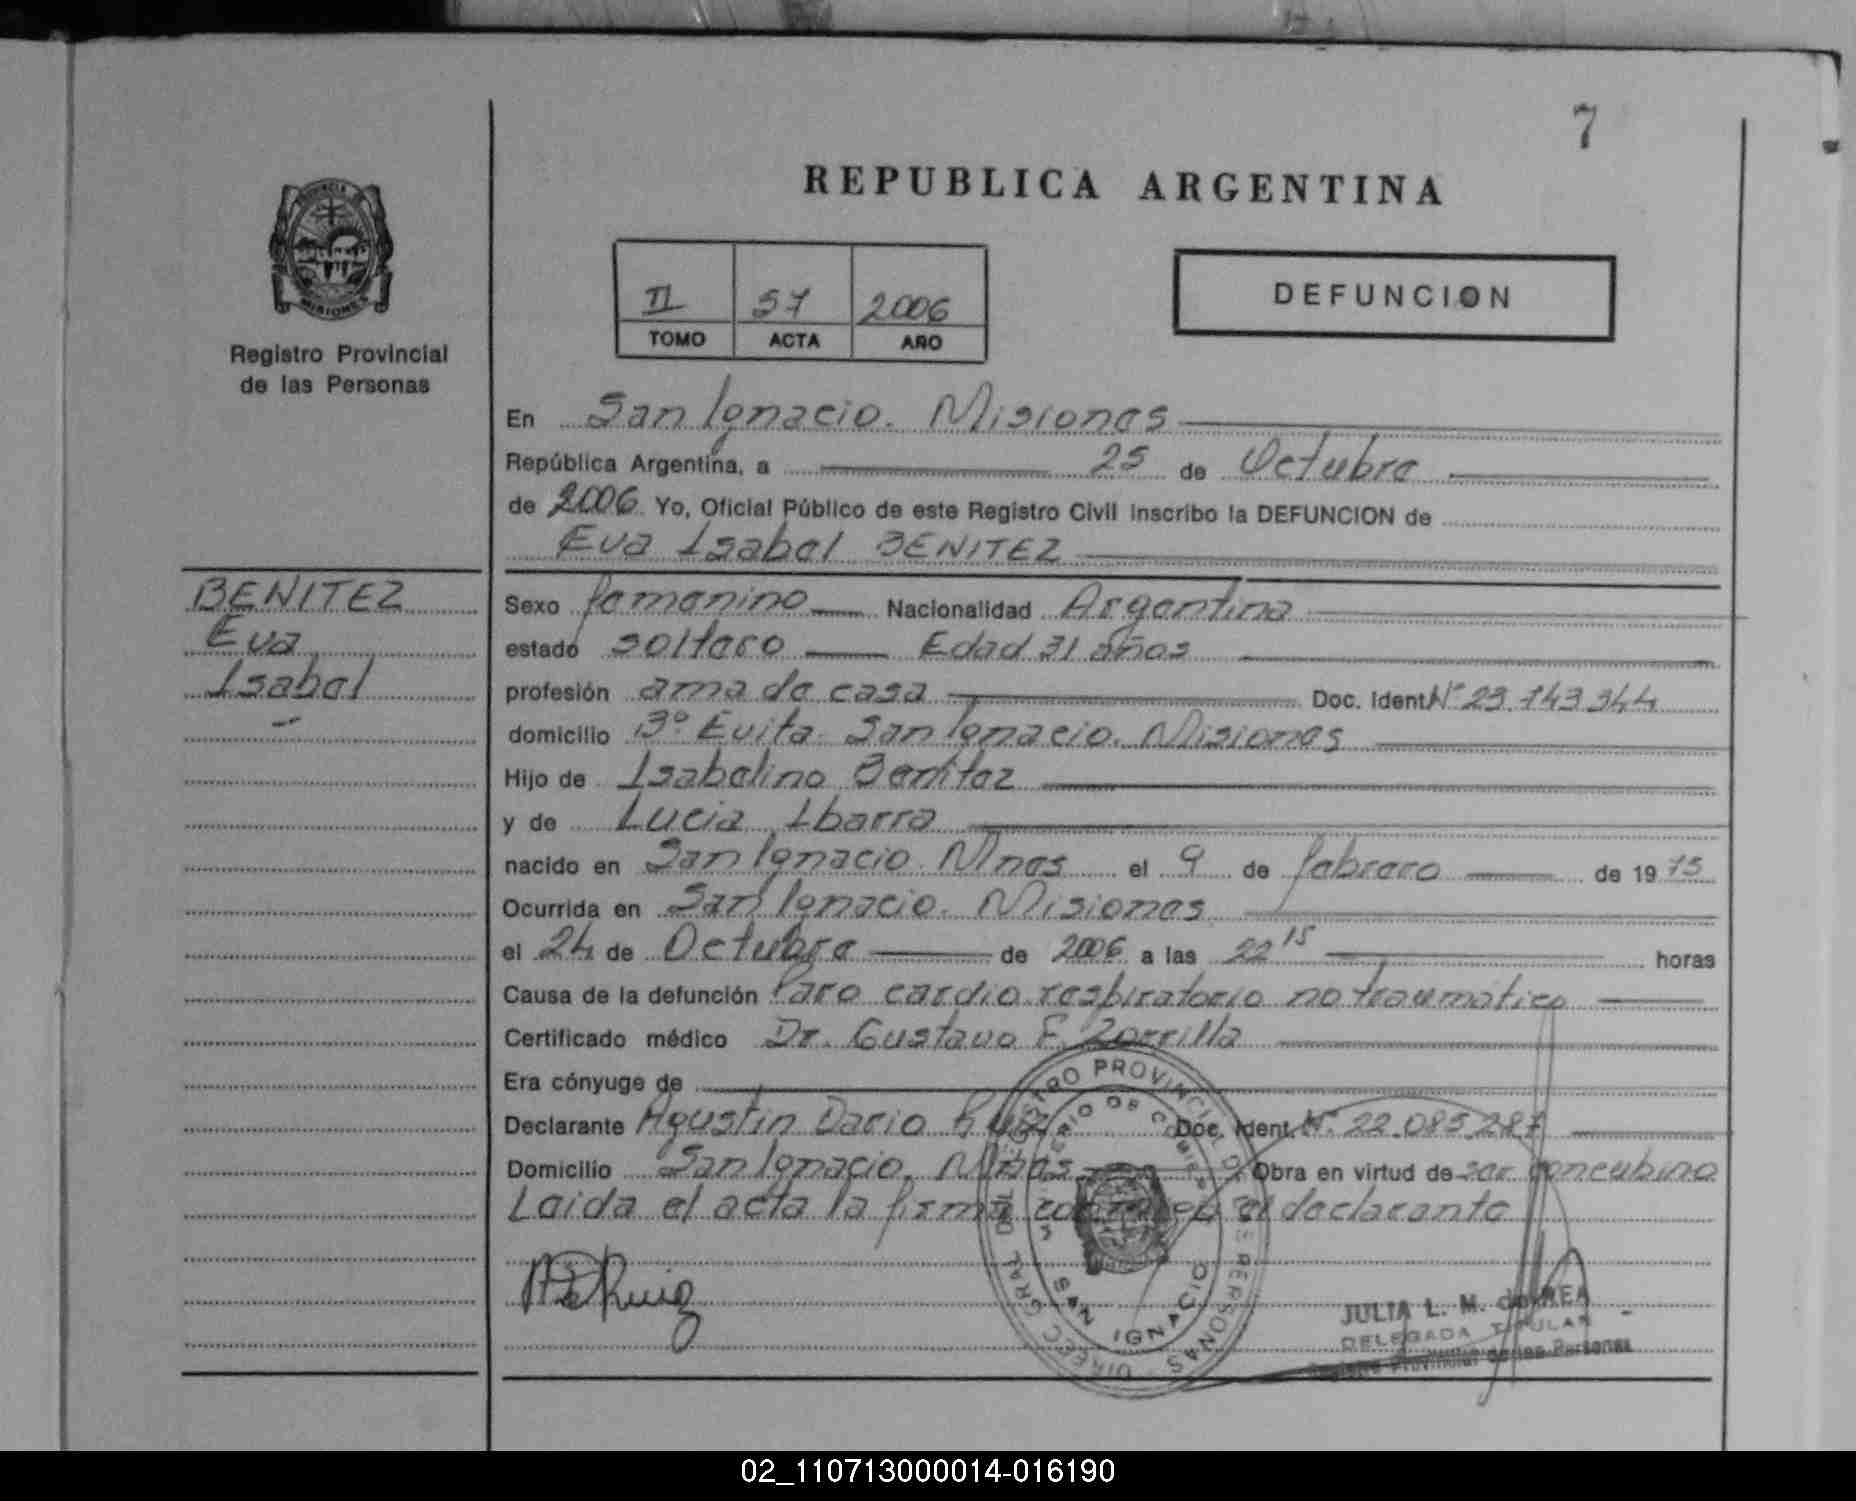 7
REPUBLICA ARGENTINA
PROVINCIA
MISIONES
Registro Provincial
de las Personas
II 57 2006
TOMO ACTA AÑO
DEFUNCION
En San Ignacio. Misiones
República Argentina, a 25 de Octubre
de 2006 Yo, Oficial Público de este Registro Civil inscribo la DEFUNCION de
Eva Isabel BENITEZ
BENITEZ
Eva
Isabel
Sexo femenino Nacionalidad Argentina
estado soltero Edad 31 años
profesión ama de casa Doc. Ident. Nº 23.743.344
domicilio Bº Evita San Ignacio. Misiones
Hijo de Isabelino Benitez
y de Lucia Ibarra
nacido en San Ignacio Mnes el 9 de febrero de 1975
Ocurrida en San Ignacio. Misiones
el 24 de Octubre de 2006 a las 22 15 horas
Causa de la defunción Paro cardio respiratorio no traumático
Certificado médico Dr. Gustavo F. Zorrilla
Era cónyuge de
Declarante Agustin Dario Ruiz Doc. Ident. Nº 22.085.287
Domicilio San Ignacio. Mnes Obra en virtud de ser concubino
Leida el acta la firma conmigo el declarante
A D Ruiz
DIREC. GRAL. DEL REGISTRO PROVINCIAL DE LAS PERSONAS
MINISTERIO DE GOBIERNO
SAN IGNACIO
JULIA L. M. CORREA
DELEGADA TITULAR
Registro Provincial de las Personas
02_110713000014-016190